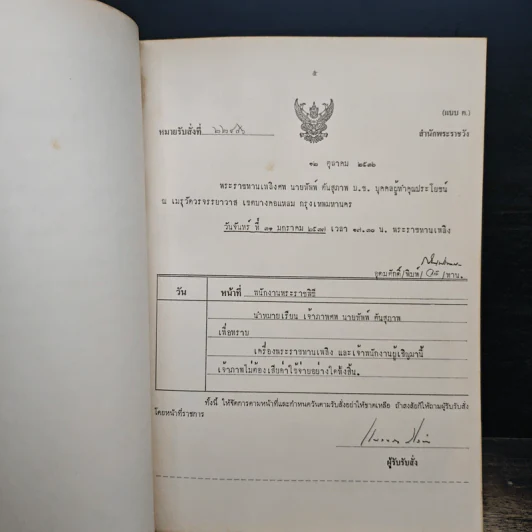 ๕
(แบบ ค.)
หมายรับสั่งที่ ๒๒๔๕๖
สำนักพระราชวัง
๑๒ ตุลาคม ๒๕๓๖
พระราชทานเพลิงศพ นายทัพพ์ ตันสุภาพ ม.ช. บุคคลผู้ทำคุณประโยชน์
ณ เมรุวัดวรจรรยาวาส เขตบางคอแหลม กรุงเทพมหานคร
วันจันทร์ ที่ ๓๑ มกราคม ๒๕๓๗ เวลา ๑๗.๓๐ น. พระราชทานเพลิง
/พิมพ์/ /ทาน.
วัน
หน้าที่ พนักงานพระราชพิธี
นำหมายเรียน เจ้าภาพศพ นายทัพพ์ ตันสุภาพ
เพื่อทราบ
เครื่องพระราชทานเพลิง และเจ้าพนักงานผู้เชิญมานี้
เจ้าภาพไม่ต้องเสียค่าใช้จ่ายอย่างใดทั้งสิ้น.
ทั้งนี้ ให้จัดการตามหน้าที่และกำหนดวันตามรับสั่งอย่าให้ขาดเหลือ ถ้าสงสัยก็ให้ถามผู้รับรับสั่ง
โดยหน้าที่ราชการ
ผู้รับรับสั่ง